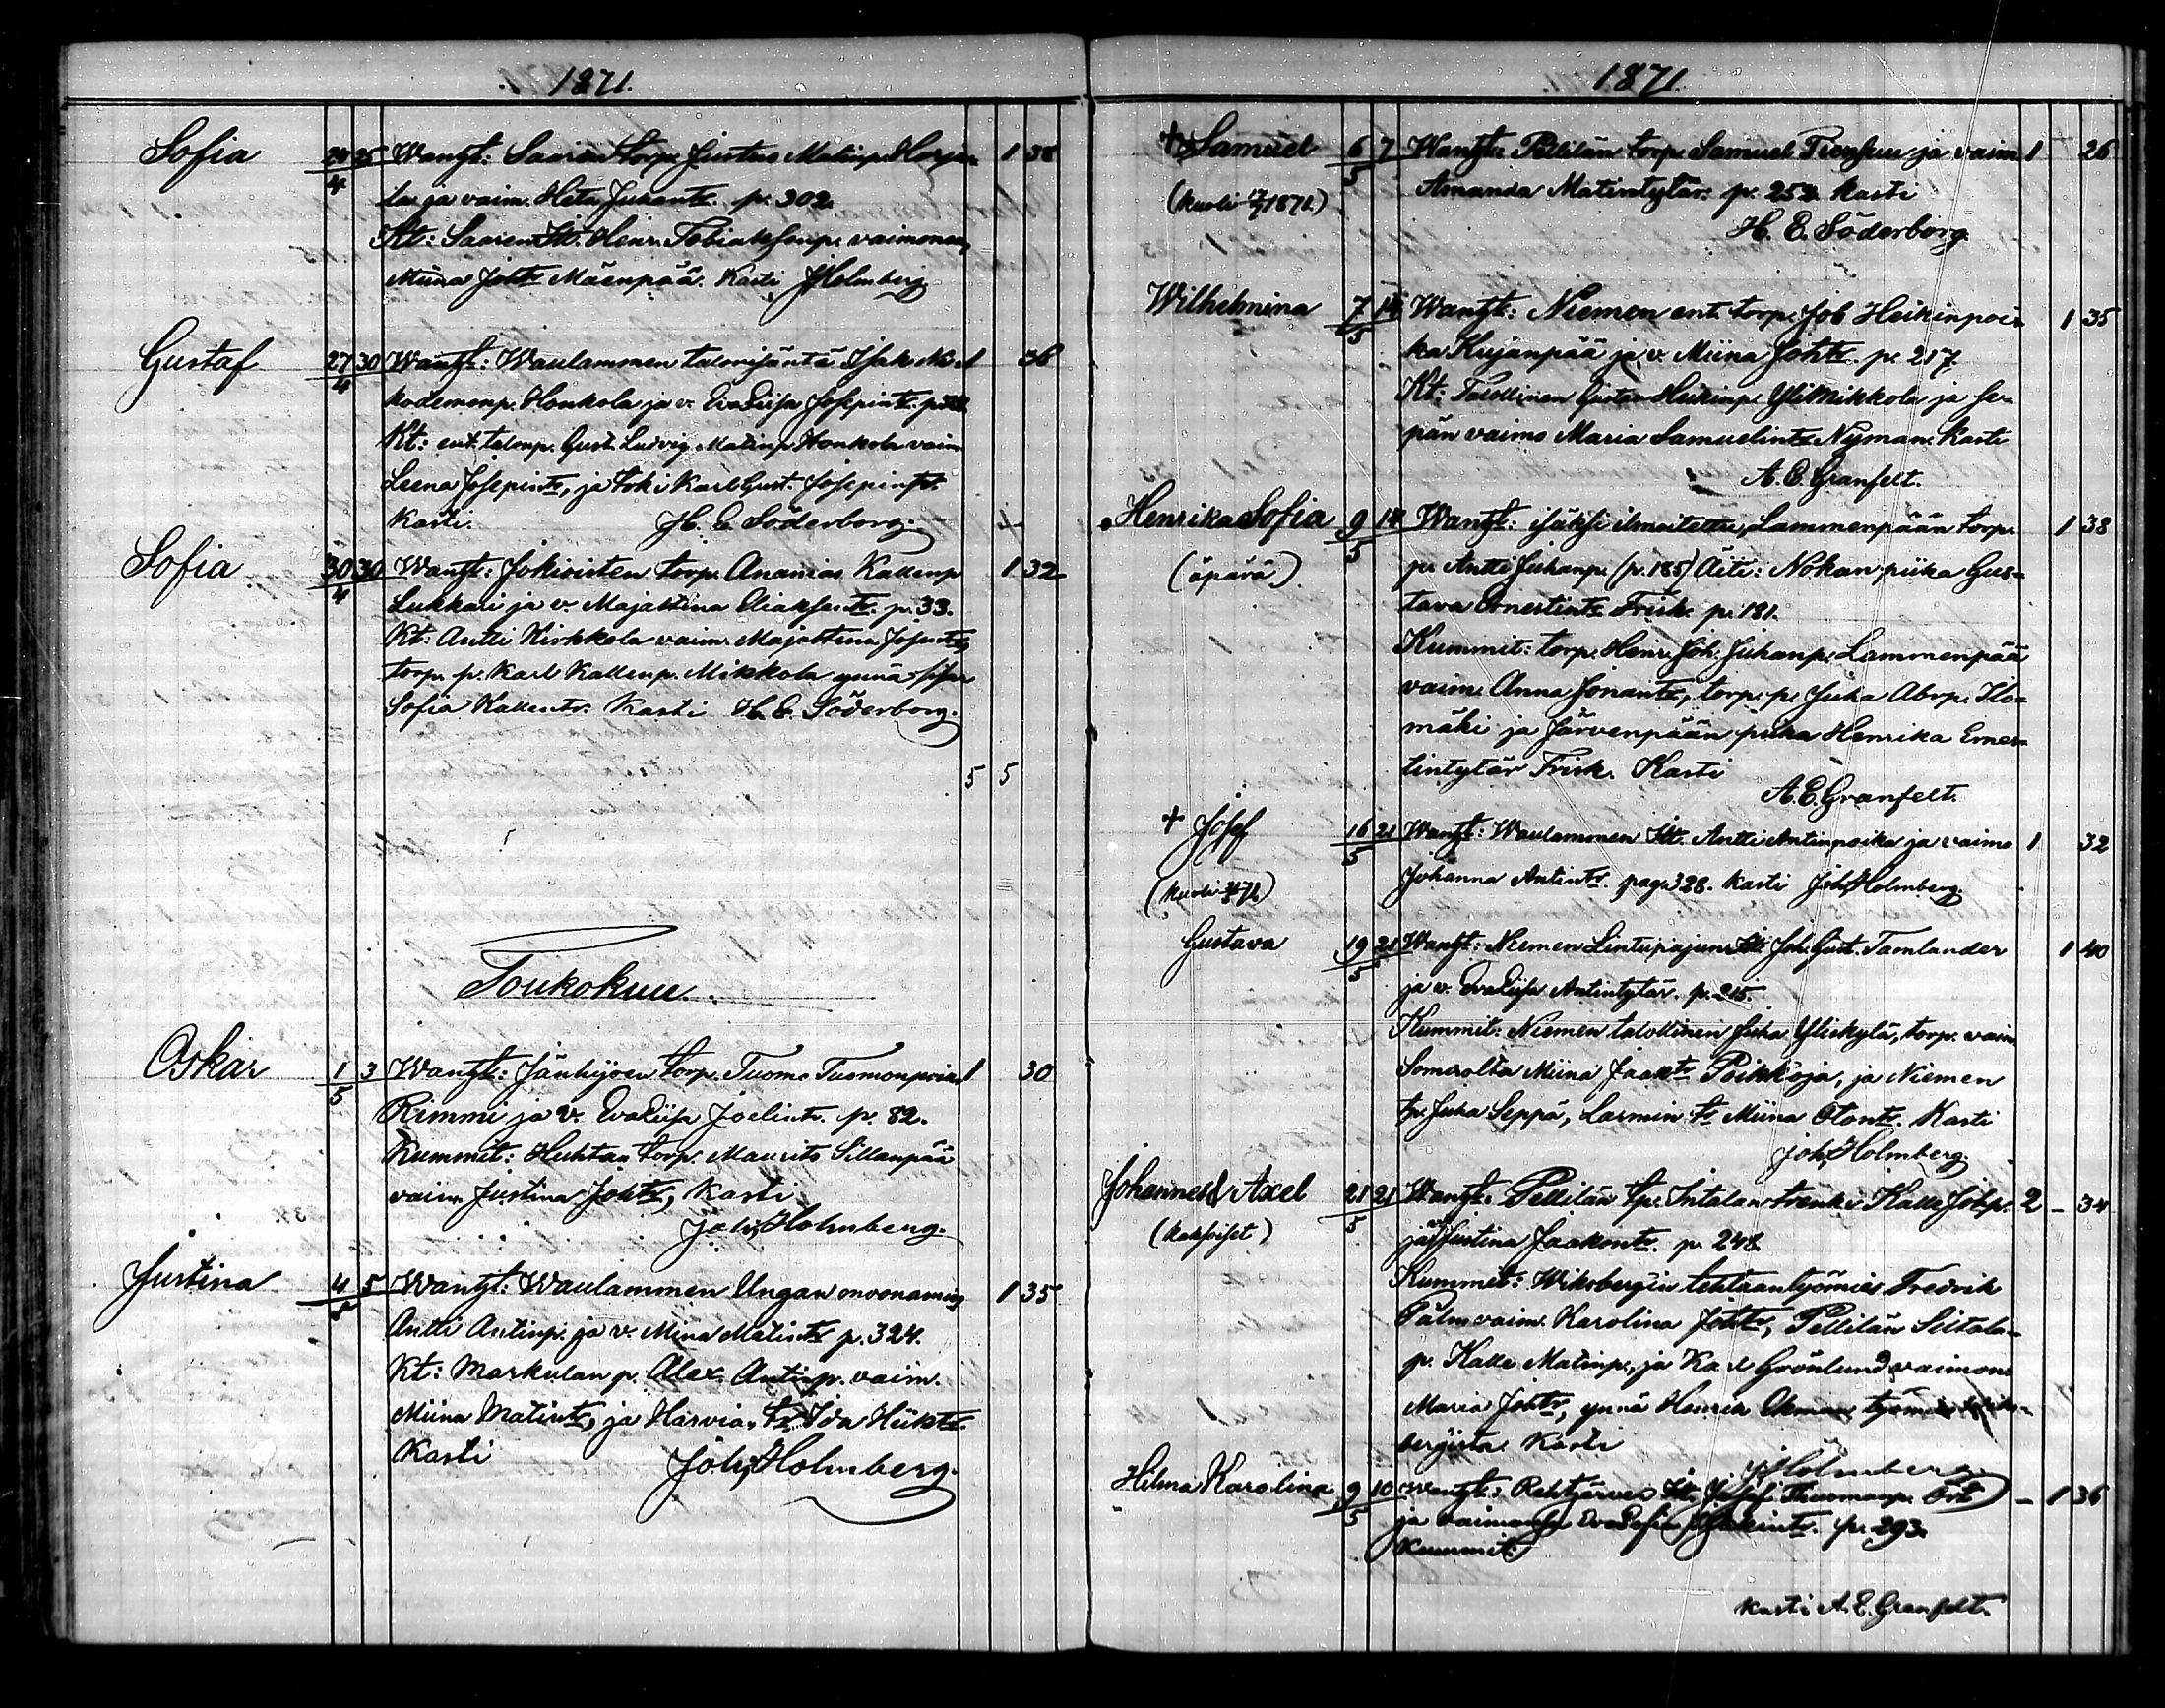 1871.
Sofia 24/4 25 Wanht: Saaren torp. Justus Matinp. Harju- 1 38
la ja vaim. Heta Juhantr. p. 302.
Kt: Saaren Itt. Henr. Tobiaksenp. vaimonsa
Miina Johtr Mäenpää. Kasti JHolmberg.
Gustaf 27/4 30 Wanht: Waulammen talonisäntä Isak Ni- 1 36
kodemonp. Honkola ja v. EvaLiisa Josepintr.
Kt: ent. talonp. Gust. Ludvig Matinp. Honkola vaim.
Leena Josepintr, ja Karl Gust. Josepinp.
Kasti. H. E. Söderborg.
Sofia 30/4 30 Wanht: Jokioisten torp. Ananias Kallenp 1 32
Lukkari ja v. MajaStina Eliaksentr. p. 33.
Kt: Antti Kirkkola vaim. MajaStina
torp. p. Karl Kallenp. Mikkola ynnä sisar
Sofia Kallentr. Kasti H. E. Söderborg.
5 5
Toukokuu.
Oskar 1/5 3 Wanht: Jänhijoen torp. Tuomo Tuomonpoika 1 30
Rimmi ja v. EvaLiisa Joelintr. p. 82.
Kummit: Huhtaa torp. Maurits Sillanpää
vaim. Justina Johtr, Kasti
Joh. Holmberg.
Justina 4/5 5 Wanht: Waulammen Ungan muonamies 1 35
Antti Antinp. ja v. Mina Matintr p. 324.
Kt: Markulan p. Alex. Antinp. vaim.
Miina Matintr, ja Harvian tr. Ida Hiiktr.
Kasti Joh. Holmberg.
1871.
+ Samuel 6/5 7 Wanht: Pellilän torp. Samuel Trensuu ja vaim 1 26
(kuoli 1871.) Amanda Matintytär. p. 252. Kasti
H. E. Söderborg.
Wilhelmina 7/5 14 Wanht: Niemen ent. torp. Job Heikinpoi- 1 35
ka Kujanpää ja v. Miina Johtr. p. 217.
Kt: Talollinen Gustav Heikinp. YliMikkola ja se-
pän vaimo Maria Samuelintr Nyman. Kasti
A. E. Granfelt.
Henrika Sofia 9/5 14 Wanht: isäksi ilmoitettu, Lammenpään torp. 1 38
(äpärä) p. Antti Juhanp. (p. 185) Äiti: Nokan piika Gus-
tava Ernestintr Frisk. p. 181.
Kummit: torp. Henr. Joh. Juhanp. Lammenpää
vaim. Anna Jonantr, torp. p. Juha Abrp. Ilo-
mäki ja Järvenpään piika Henrika Ernes-
tintytär Frisk. Kasti
A. E. Granfelt.
+ Josef 16/5 21 Wanht: Waulammen Itt. Antti Antinpoika ja vaimo 1 32
(kuoli 71) Johanna Antintr. pag. 328. Kasti Joh. Holmberg.
Gustava 19/5 21 Wanht: Niemen Lintupajun Itt. Joh. Gust. Tamlander 1 40
ja v. EvaLiisa Antintytär. p. 215.
Kummit: Niemen talollinen Juha Ylickylä, torp. vaim
Somerolta Miina Jaaktr Poikkoja, ja Niemen
tp. Juha Seppä, Larmin tr Miina Otontr. Kasti
Joh. Holmberg.
Johannes & Axel 21/5 21 Wanht: Pellilän tp. Intalan trenki Kalle Johp. 2 – 34
(kaksoiset) ja v. Justina Jaakontr. p. 248.
Kummit: Wiksbergin tehtaantyömies Fredrik
Palm vaim. Karolina Johtr, Pellilän Siltala-
p. Kalle Matinp., ja Karl Grönlund vaimons
Maria Johtr, ynnä Henrik Okman työmies Wiks-
bergista. Kasti
JHolmberg.
Hilma Karolina 9/5 10 Wanht: Rehtijärven Itt. Josef Thuomanp. – 1 36
ja vaimonsa EvaSofia p. 293.
Kummit:
Kasti A. E. Granfelt.